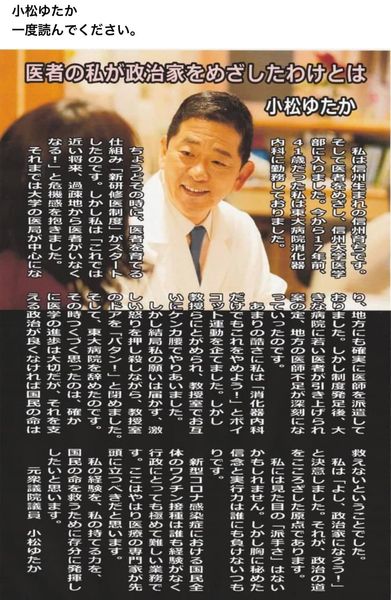 小松ゆたか
一度読んでください。
医者の私が政治家をめざしたわけとは
小松ゆたか
私は信州生まれの信州育ちです。
そして医者をめざし、信州大学医学
部に入りました。今から17年前、
41歳だった私は東大病院消化器
内科に勤務しておりました。
ちょうどその時に、医者を育てる
仕組み「新研修医制度」がスタート
したのです。しかし私は「これでは
近い将来、過疎地から医者がいなく
なる！」と危機感を抱きました。
それまでは大学の医局が中心にな
り、地方にも確実に医師を派遣して
おりました。しかし制度発足後、大
きな病院に若い医者が引き上げられ
案の定、地方の医師不足が深刻にな
っていったのです。
あまりの酷さに私は「消化器内科
だけでもこれをやめよう！」とボイ
コット運動を企てました。しかし
教授らにとがめられ、教授室でお互
いにケンカ腰でやりあいました。
しかし結局私の願いは届かず、激
しい怒りを押し殺しながら、教授室
のドアを「バタン！」と閉めました。
そして、東大病院を辞めたのです。
その時つくづく思ったのは、確か
に医学の進歩は大切だが、それを支
える政治が良くなければ国民の命は
救えないということでした。
私は「よし、政治家になろう！」
と決意しました。それが、政治の道
をこころざした原点であります。
私には見た目の「派手さ」はない
かもしれません。しかし胸に秘めた
信念と実行力は誰にも負けないつも
りです。
新型コロナ感染症における国民全
体のワクチン接種は誰も経験がなく
行政にとっても極めて難しい業務で
す。ここはやはり医療の専門家が先
頭に立つべきだと思います。
私の経験を、私の持てる力を、
国民の命を救うために存分に発揮し
たいと思います。
元衆議院議員　小松ゆたか